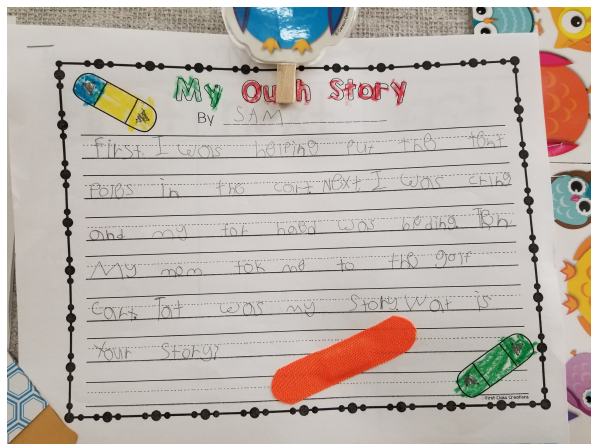 My Ouch Story
By SAM
First I was helping put the tent
Poles in the cart Next I was criing
and my for haed was bleding Ten
My mom tok me to the golf
Cart Tat was my Story Wat is
Your Story?
First Class Creations